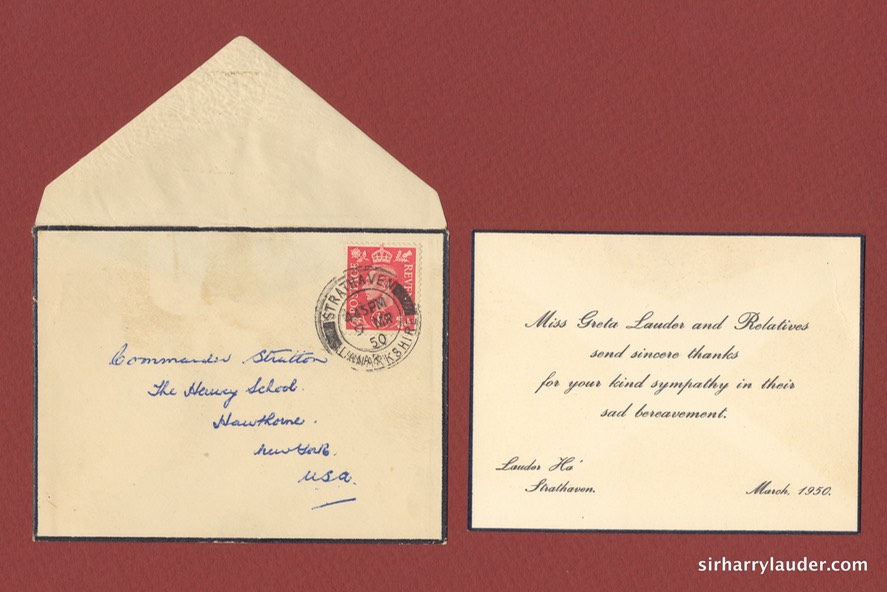 POSTAGE REVENUE
STRATHAVEN
4.15 PM
9 MR
50
LANARKSHIRE
Commander Stratton
The Harvey School.
Hawthorne.
New York.
USA.
Miss Greta Lauder and Relatives
send sincere thanks
for your kind sympathy in their
sad bereavement.
Lauder Ha'
Strathaven.
March, 1950.
sirharrylauder.com